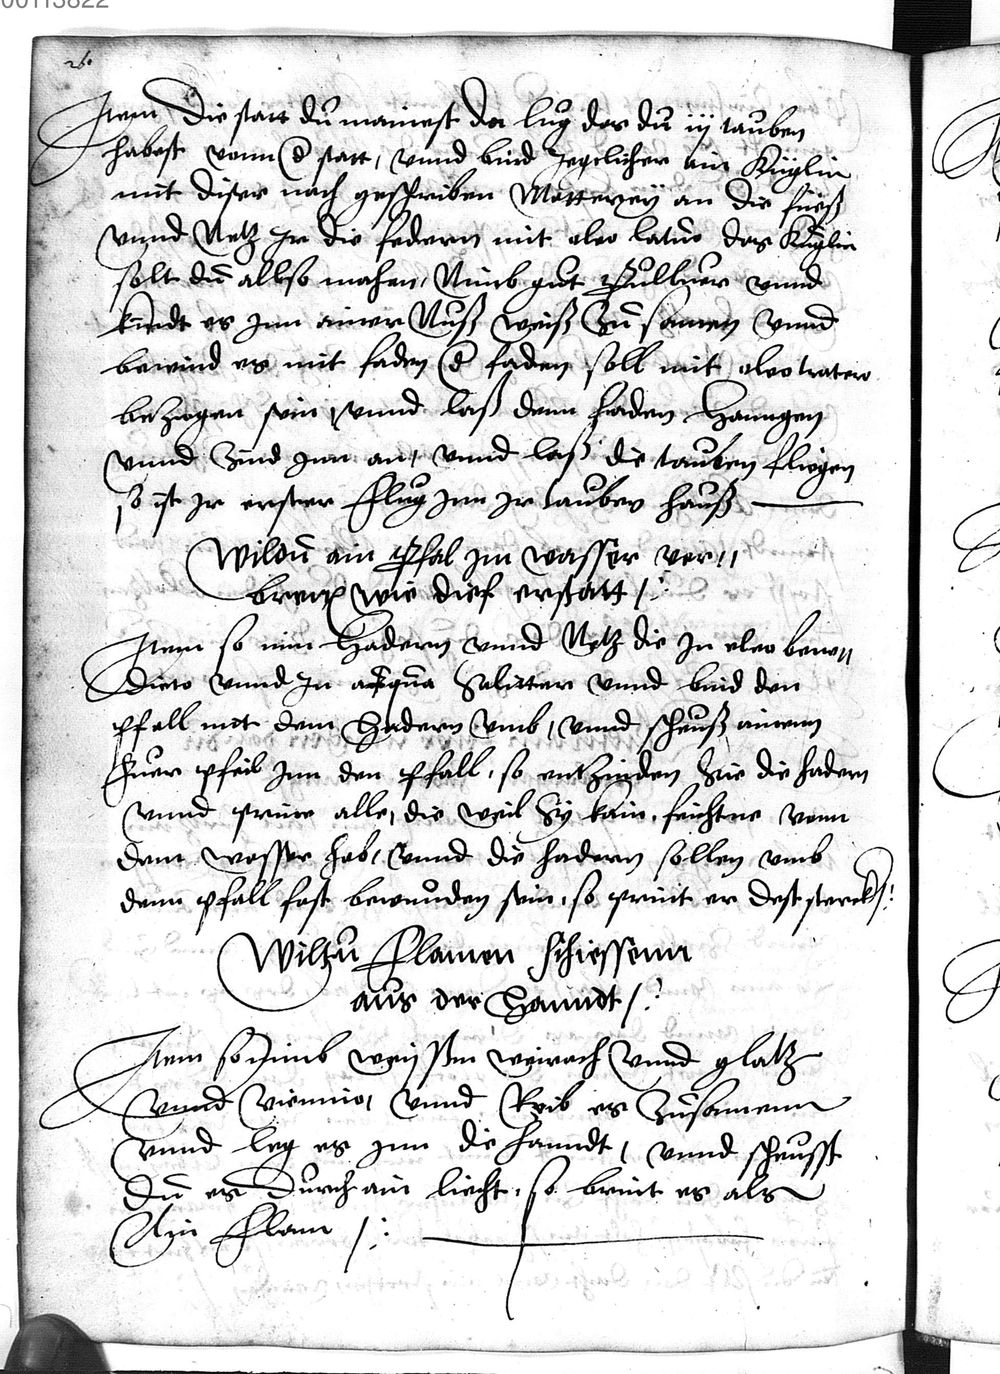 00113822
26
Item Die statt du mainest da lug das du iij tauben
habest vonn d statt, vnnd bind Jegclicher ain Küglin
mit diser nach geschriben Matterey an die füeß
vnnd Netz Jr die federn mit oleo latino das Küglin
solt du allso mahen, Nimb gut Pulluer vnnd
kindt es Jnn ainer Nuß weiß zu samen vnnd
bewind es mit faden d faden soll mit oleo
bezogen sein, vnnd laß denn faden Hanngen
vnnd Zind Jnn an, vnnd laß die tauben fliegen
so ist Jr erster Flug Jnn Jr tauben hauß
Wildu ain Pfal Jm wasser ver„
bren wie dief er statt /:
Item so nim Hadern vnnd Netz die Jn oleo bene„
dicto vnnd Jn aqua Saliter vnnd bind den
pfall mit dem Hadern vmb, vnnd scheuß ainenn
Fuer pfeil Jnn den pfall, so entzinden Sie die hadern
vnnd prine alle, die weil Sy kain feichtne vonn
dem wasser hab, vnnd die hadern sollen vmb
denn pfall fast bewunden sein, so print er dest sterck /:
Wiltzu Flamen schiessenn
aus der Hanndt /:
Item so Nimb weyssen weirach vnnd glatz
vnnd vernnis, vnnd Reib es Zusamenn
vnnd leg es Jnn die hanndt, vnnd scheusst
du es Durch ain liecht, so brint es als
Ain Flam /: